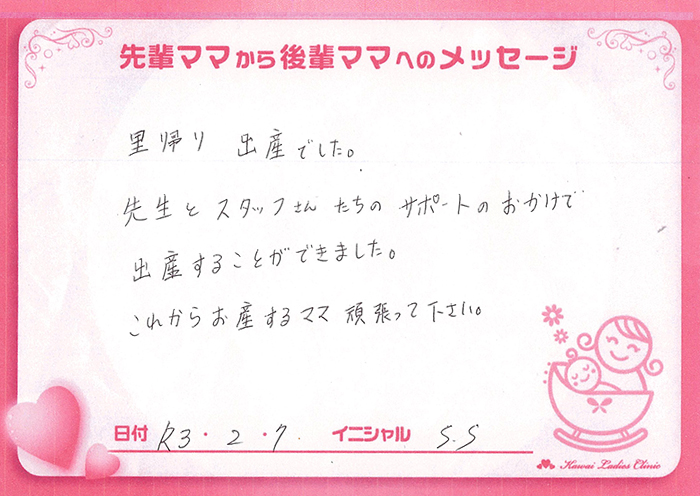 先輩ママから後輩ママへのメッセージ
里帰り 出産でした。
先生と スタッフさん たちの サポートの おかげで
出産することができました。
これからお産するママ 頑張って下さい。
日付 R3・2・7. イニシャル S.S
Kawai Ladies Clinic